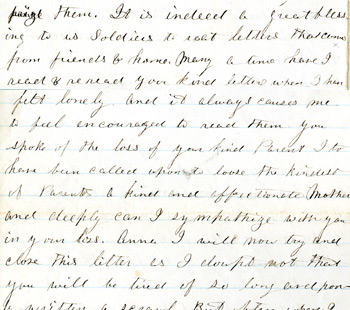 them. It is indeed a great bless
ing to us Soldiers to rait letters that come
from friends & home. Many a time have I
read & reread your kind letters when I have
felt lonely and it always causes me
to feel encouraged to read them you
spoke of the loss of your kind Parent I to
have been called upon to loose the kindest
of Parents a kind and affectionate Mother
and deeply can I sympathize with you
in your loss. Anna I will now try and
close this letter as I doubt not that
you will be tired of so long and poor
a written a scrawl. But